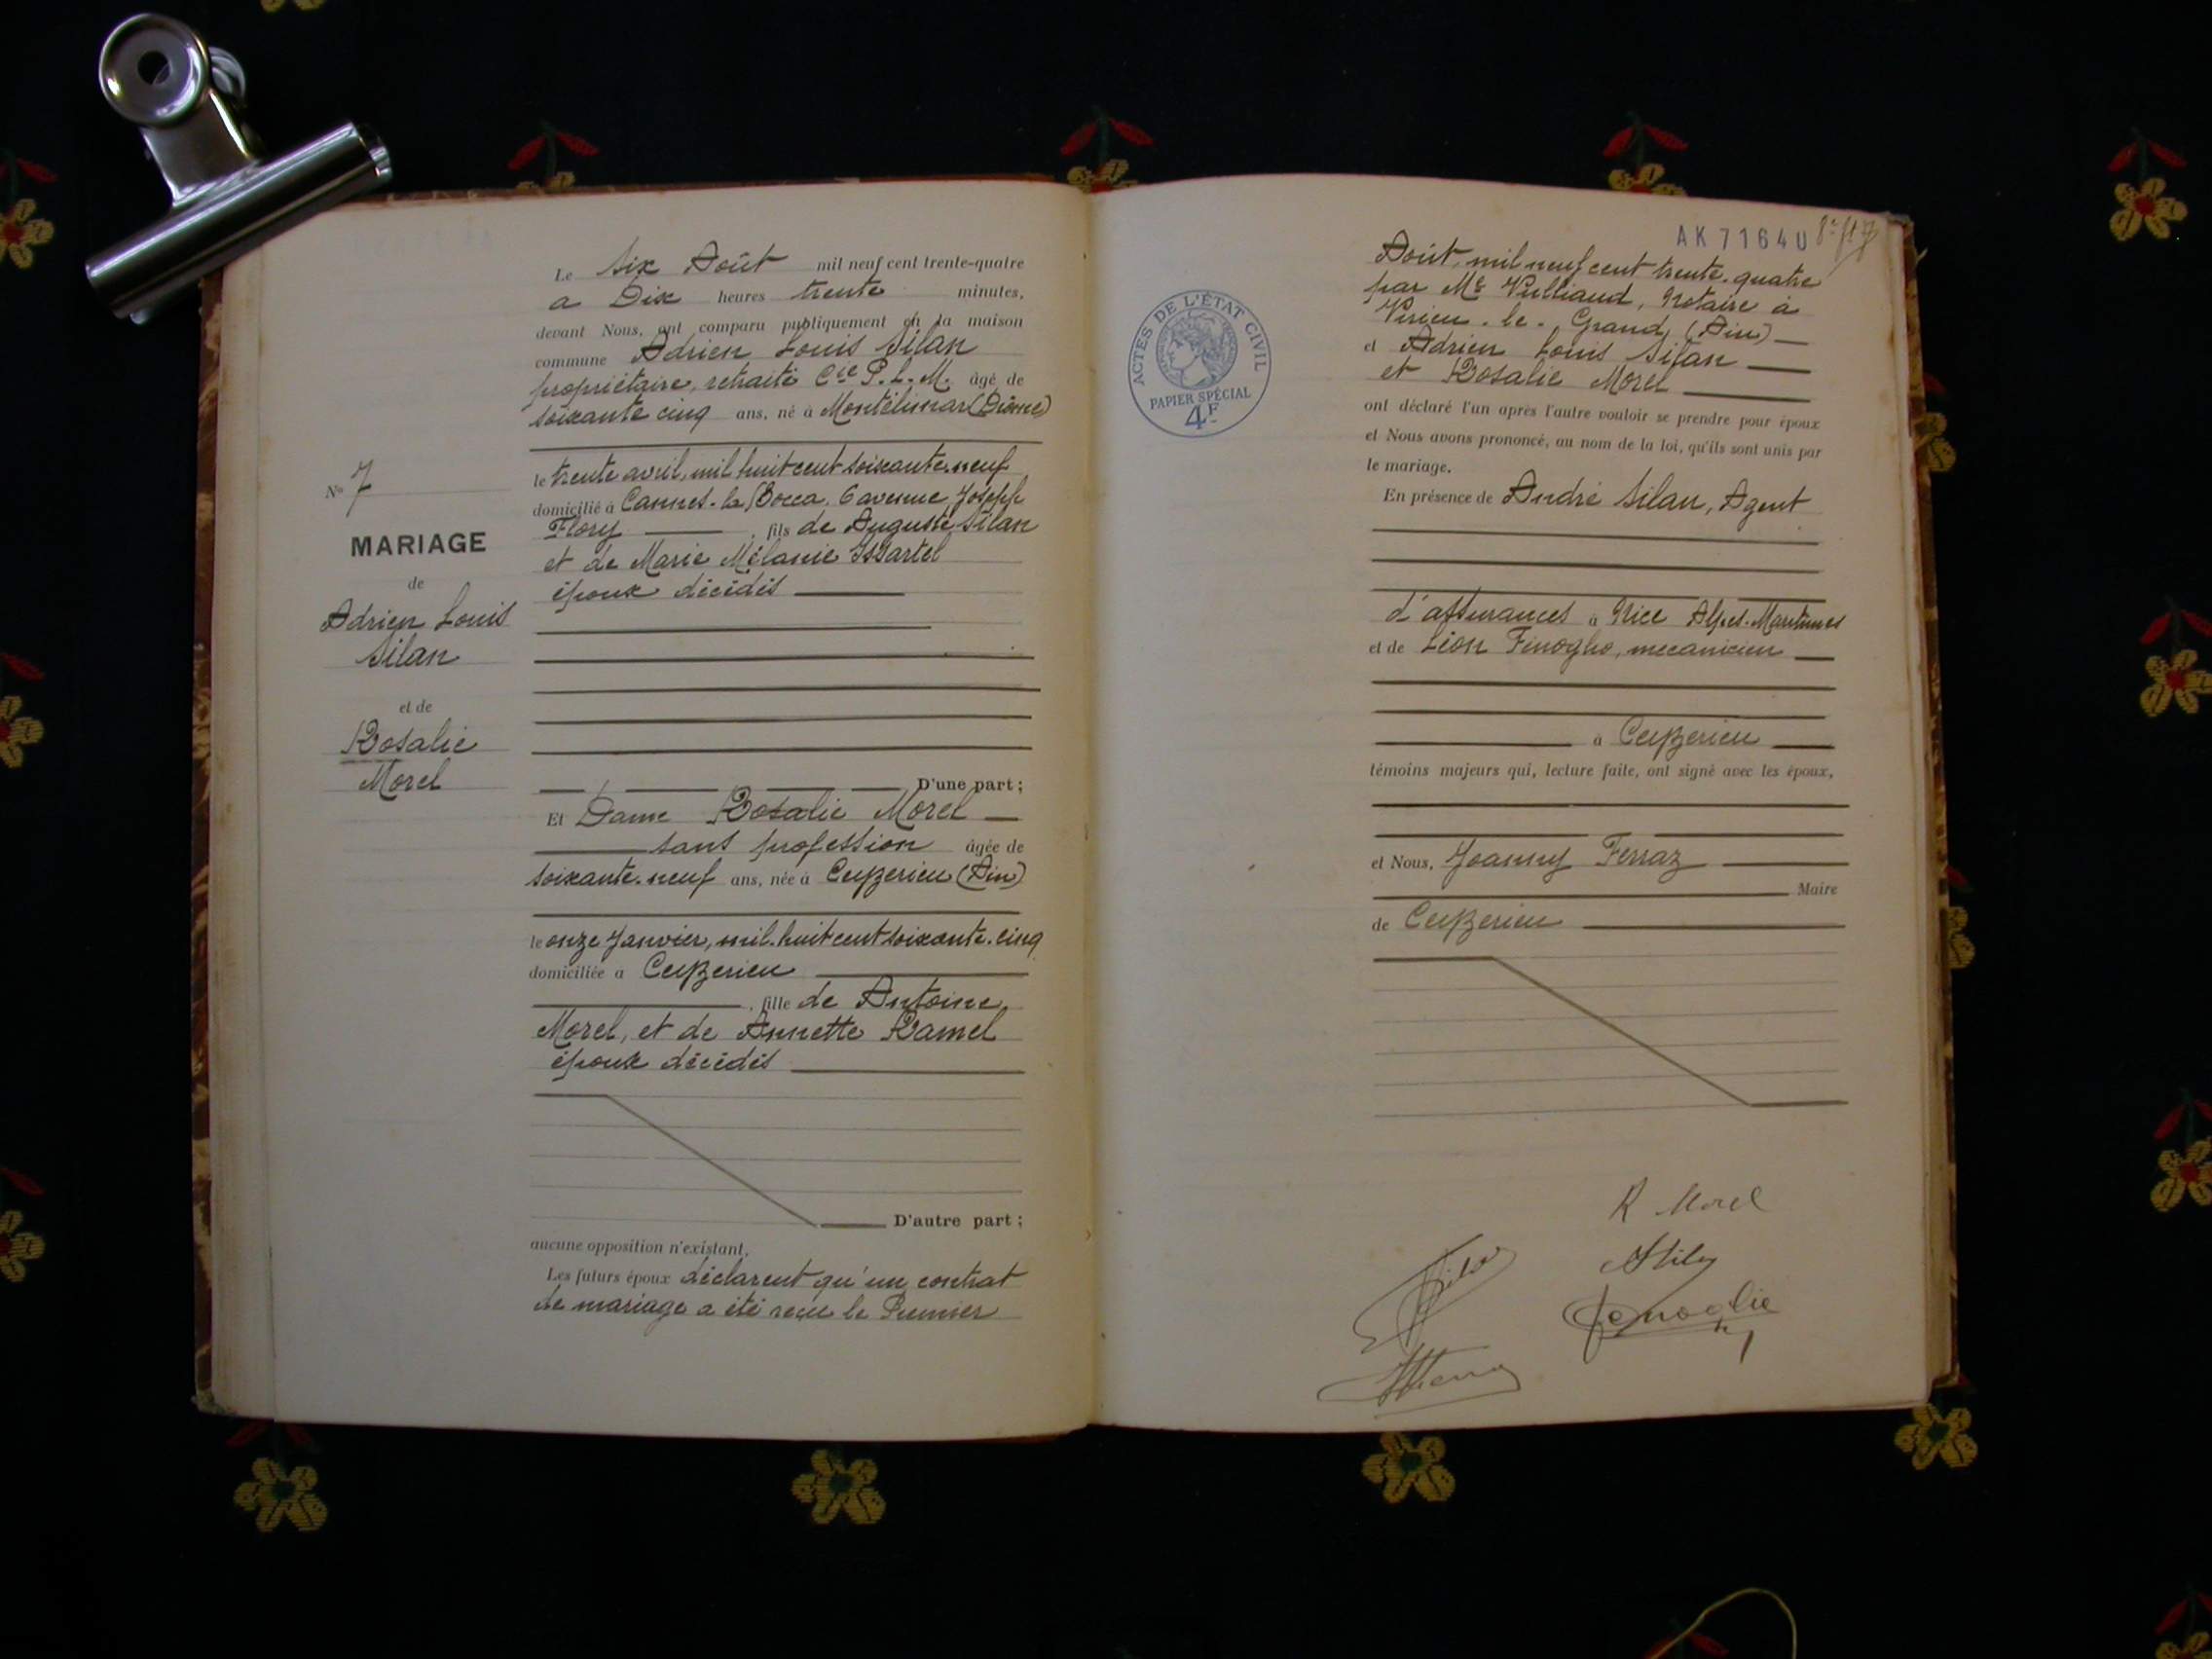 Le Six Août mil neuf cent trente-quatre
a Dix heures trente minutes,
devant Nous, ont comparu publiquement en la maison
commune Adrien Louis Silan
propriétaire, retraité Cie P.L.M. âgé de
soixante cinq ans, né à Montélimar (Drôme)
le trente avril, mil huit cent soixante-neuf
domicilié à Cannes-la-Bocca, 6 avenue Joseph
Flory , fils de Auguste Silan
et de Marie Mélanie Issartel
époux décédés
No 7
MARIAGE
de
Adrien Louis
Silan
et de
Rosalie
Morel
D'une part ;
Et Dame Rosalie Morel
sans profession âgée de
soixante-neuf ans, née à Ceyzerieu (Ain)
le onze Janvier, mil-huit cent soixante-cinq
domiciliée à Ceyzerieu
, fille de Antoine
Morel, et de Annette Ramel
époux décédés
D'autre part ;
aucune opposition n'existant,
Les futurs époux déclarent qu'un contrat
de mariage a été reçu le Premier
AK 71640
ACTES DE L'ÉTAT CIVIL
PAPIER SPÉCIAL
4F
Août, mil neuf cent trente-quatre
par Me Vulliaud, Notaire à
Virieu-le-Grand (Ain)
et Adrien Louis Silan
et Rosalie Morel
ont déclaré l'un après l'autre vouloir se prendre pour époux
et Nous avons prononcé, au nom de la loi, qu'ils sont unis par
le mariage.
En présence de André Silan, Agent
d'assurances à Nice Alpes-Maritimes
et de Léon Finoglio, mecanicien
à Ceyzerieu
témoins majeurs qui, lecture faite, ont signé avec les époux,
et Nous, Joanny Ferraz
Maire
de Ceyzerieu
R Morel